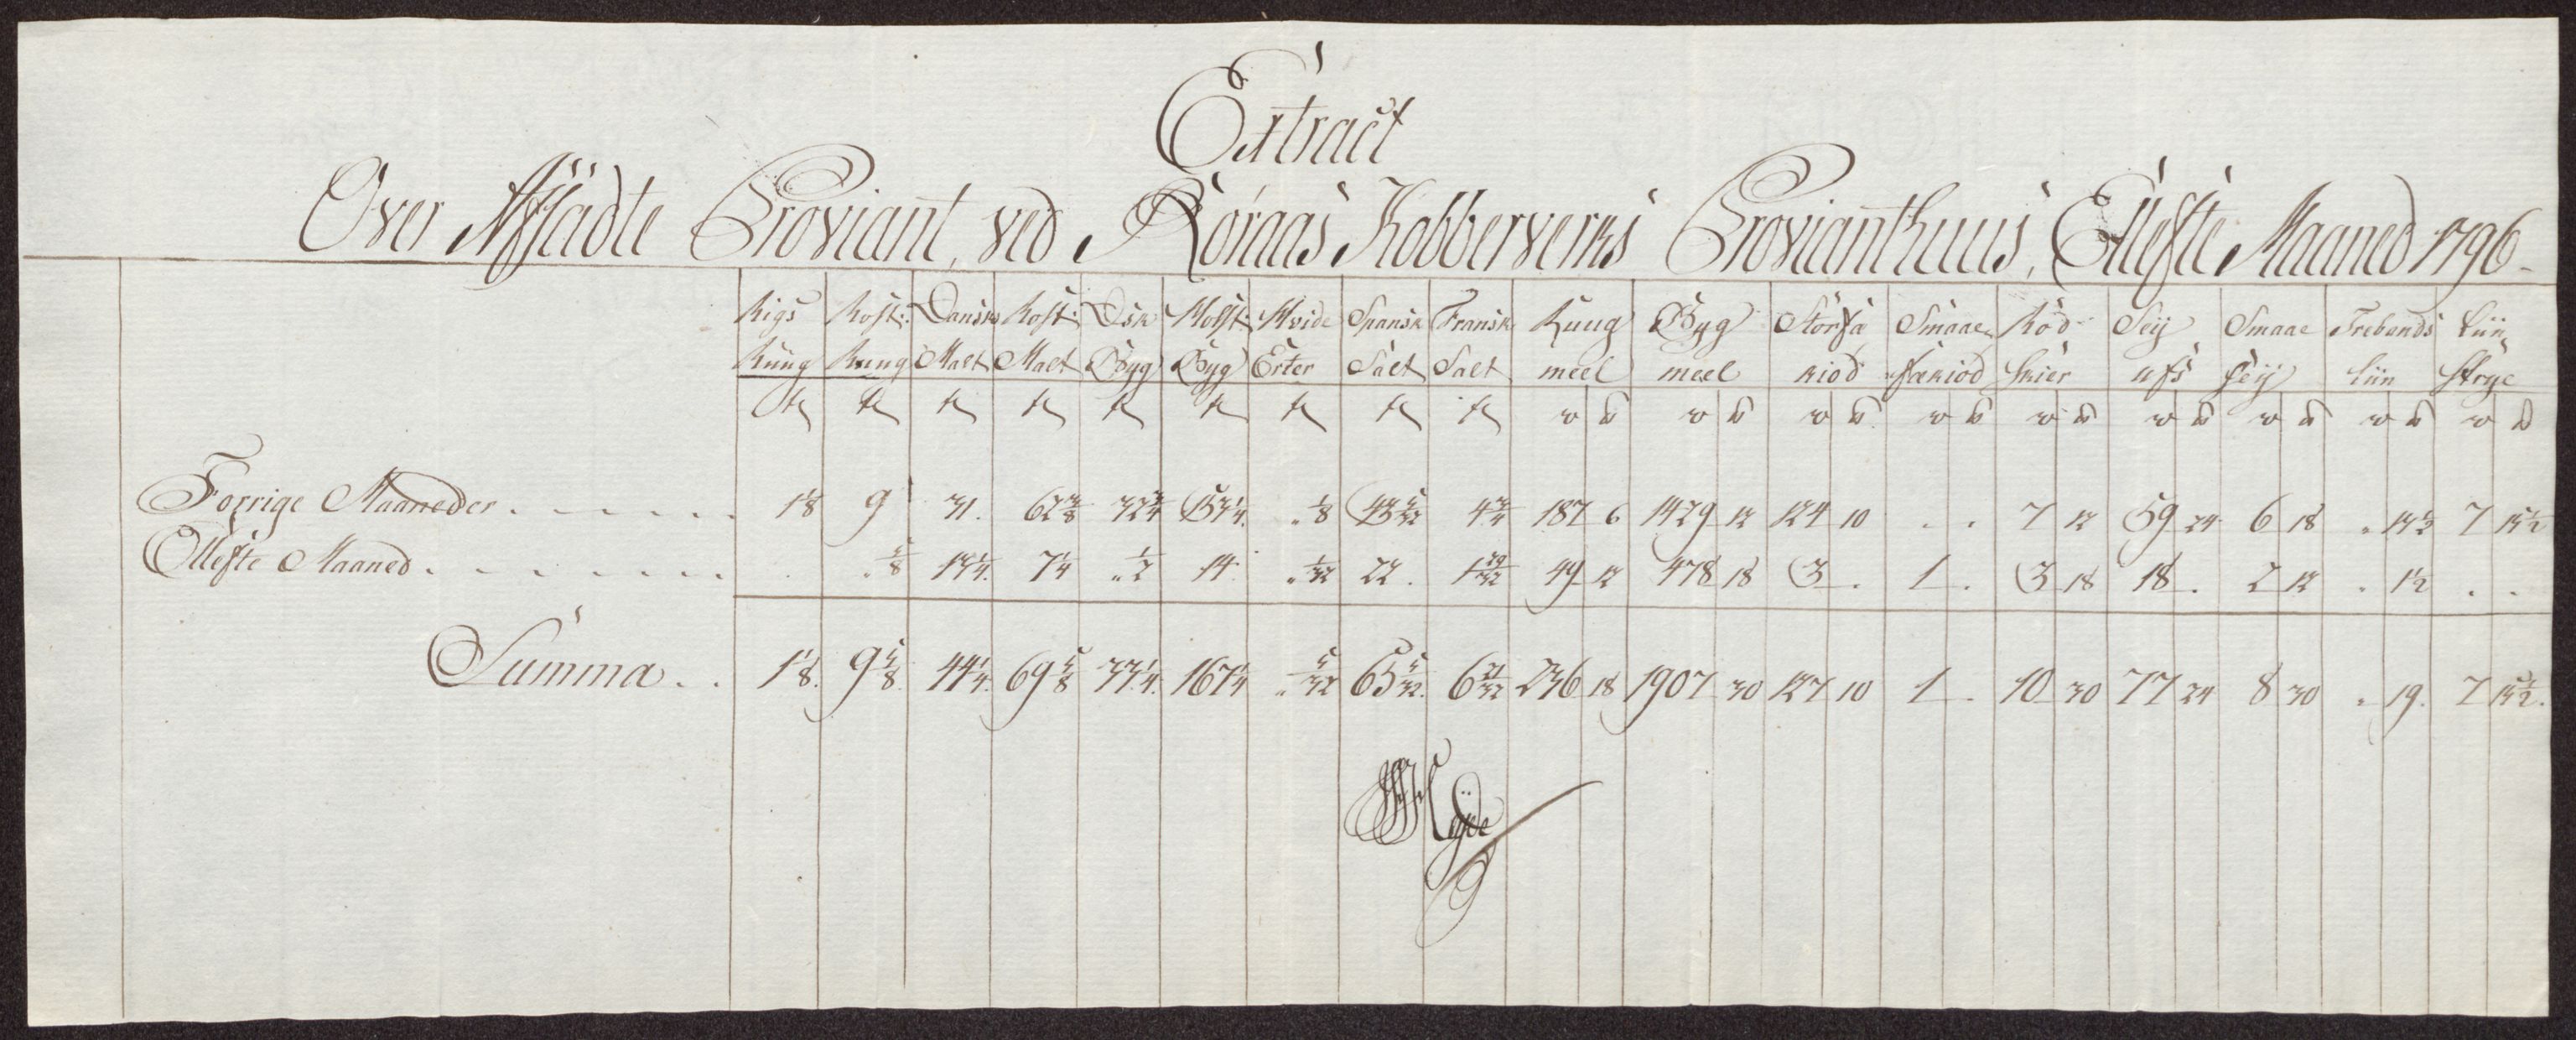 Extract
Over Afsadte Proviant, ved Röraas Kobberverks Provianthuus, Ellefte Maaned 1796.
Rigs Rost: Dansk Rost: Dsk Holst: Hvide Spansk Fransk Ruug Byg Storfæ Smaae Röd Seij Smaae Trebands Liin
Rúng Rúng Malt Malt Byg Byg Erter Salt Salt meel meel kiöd fækiöd skier ufs Seij liin Strye
Forrige Maaneder . . . . . . 1/8 9 31. 62 3/8 32 3/4 153 1/4. „ 1/8 43 5/32 4 3/4 187 6 1429 12 124 10 . . 7 12 59 24 6 18 „ 17 1/2 7 15 1/2
Ellefte Maaned . . . . . . . „ 5/8 13 1/4. 7 1/4 „ 1/2 14. „ 1/32 22. 1 29/32 49 12 478 18 3 . 1 . 3 18 18 . 2 12 „ 1 1/2 . .
Summa . . 1/8. 9 5/8. 44 1/4. 69 5/8 33 1/4. 167 1/4 „ 5/32 65 5/32. 6 21/32 236 18 1907 30 127 10 1 . 10 30 77 24 8 30 „ 19. 7 15 1/2.